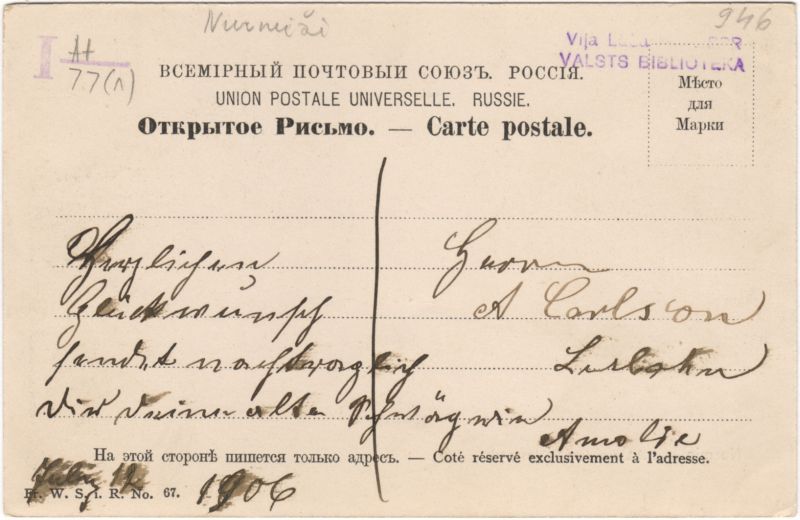 Nurmiži
946
I At
77(л)
Vija La
VALSTS BIBLIOTEKA
ВСЕМІРНЫЙ ПОЧТОВЫИ СОЮЗЪ. РОССІЯ.
UNION POSTALE UNIVERSELLE. RUSSIE.
Открытое Рисьмо. — Carte postale.
Мѣсто
для
Марки
Herzlichen
Glückwunsch
sendet nachträglich
Dir deine alte Schwägerin
Amalie
Herrn
A Carlson
На этой сторонѣ пишется только адресъ. — Coté réservé exclusivement à l'adresse.
July 12 1906
Fr. W. S. i. R. No. 67.